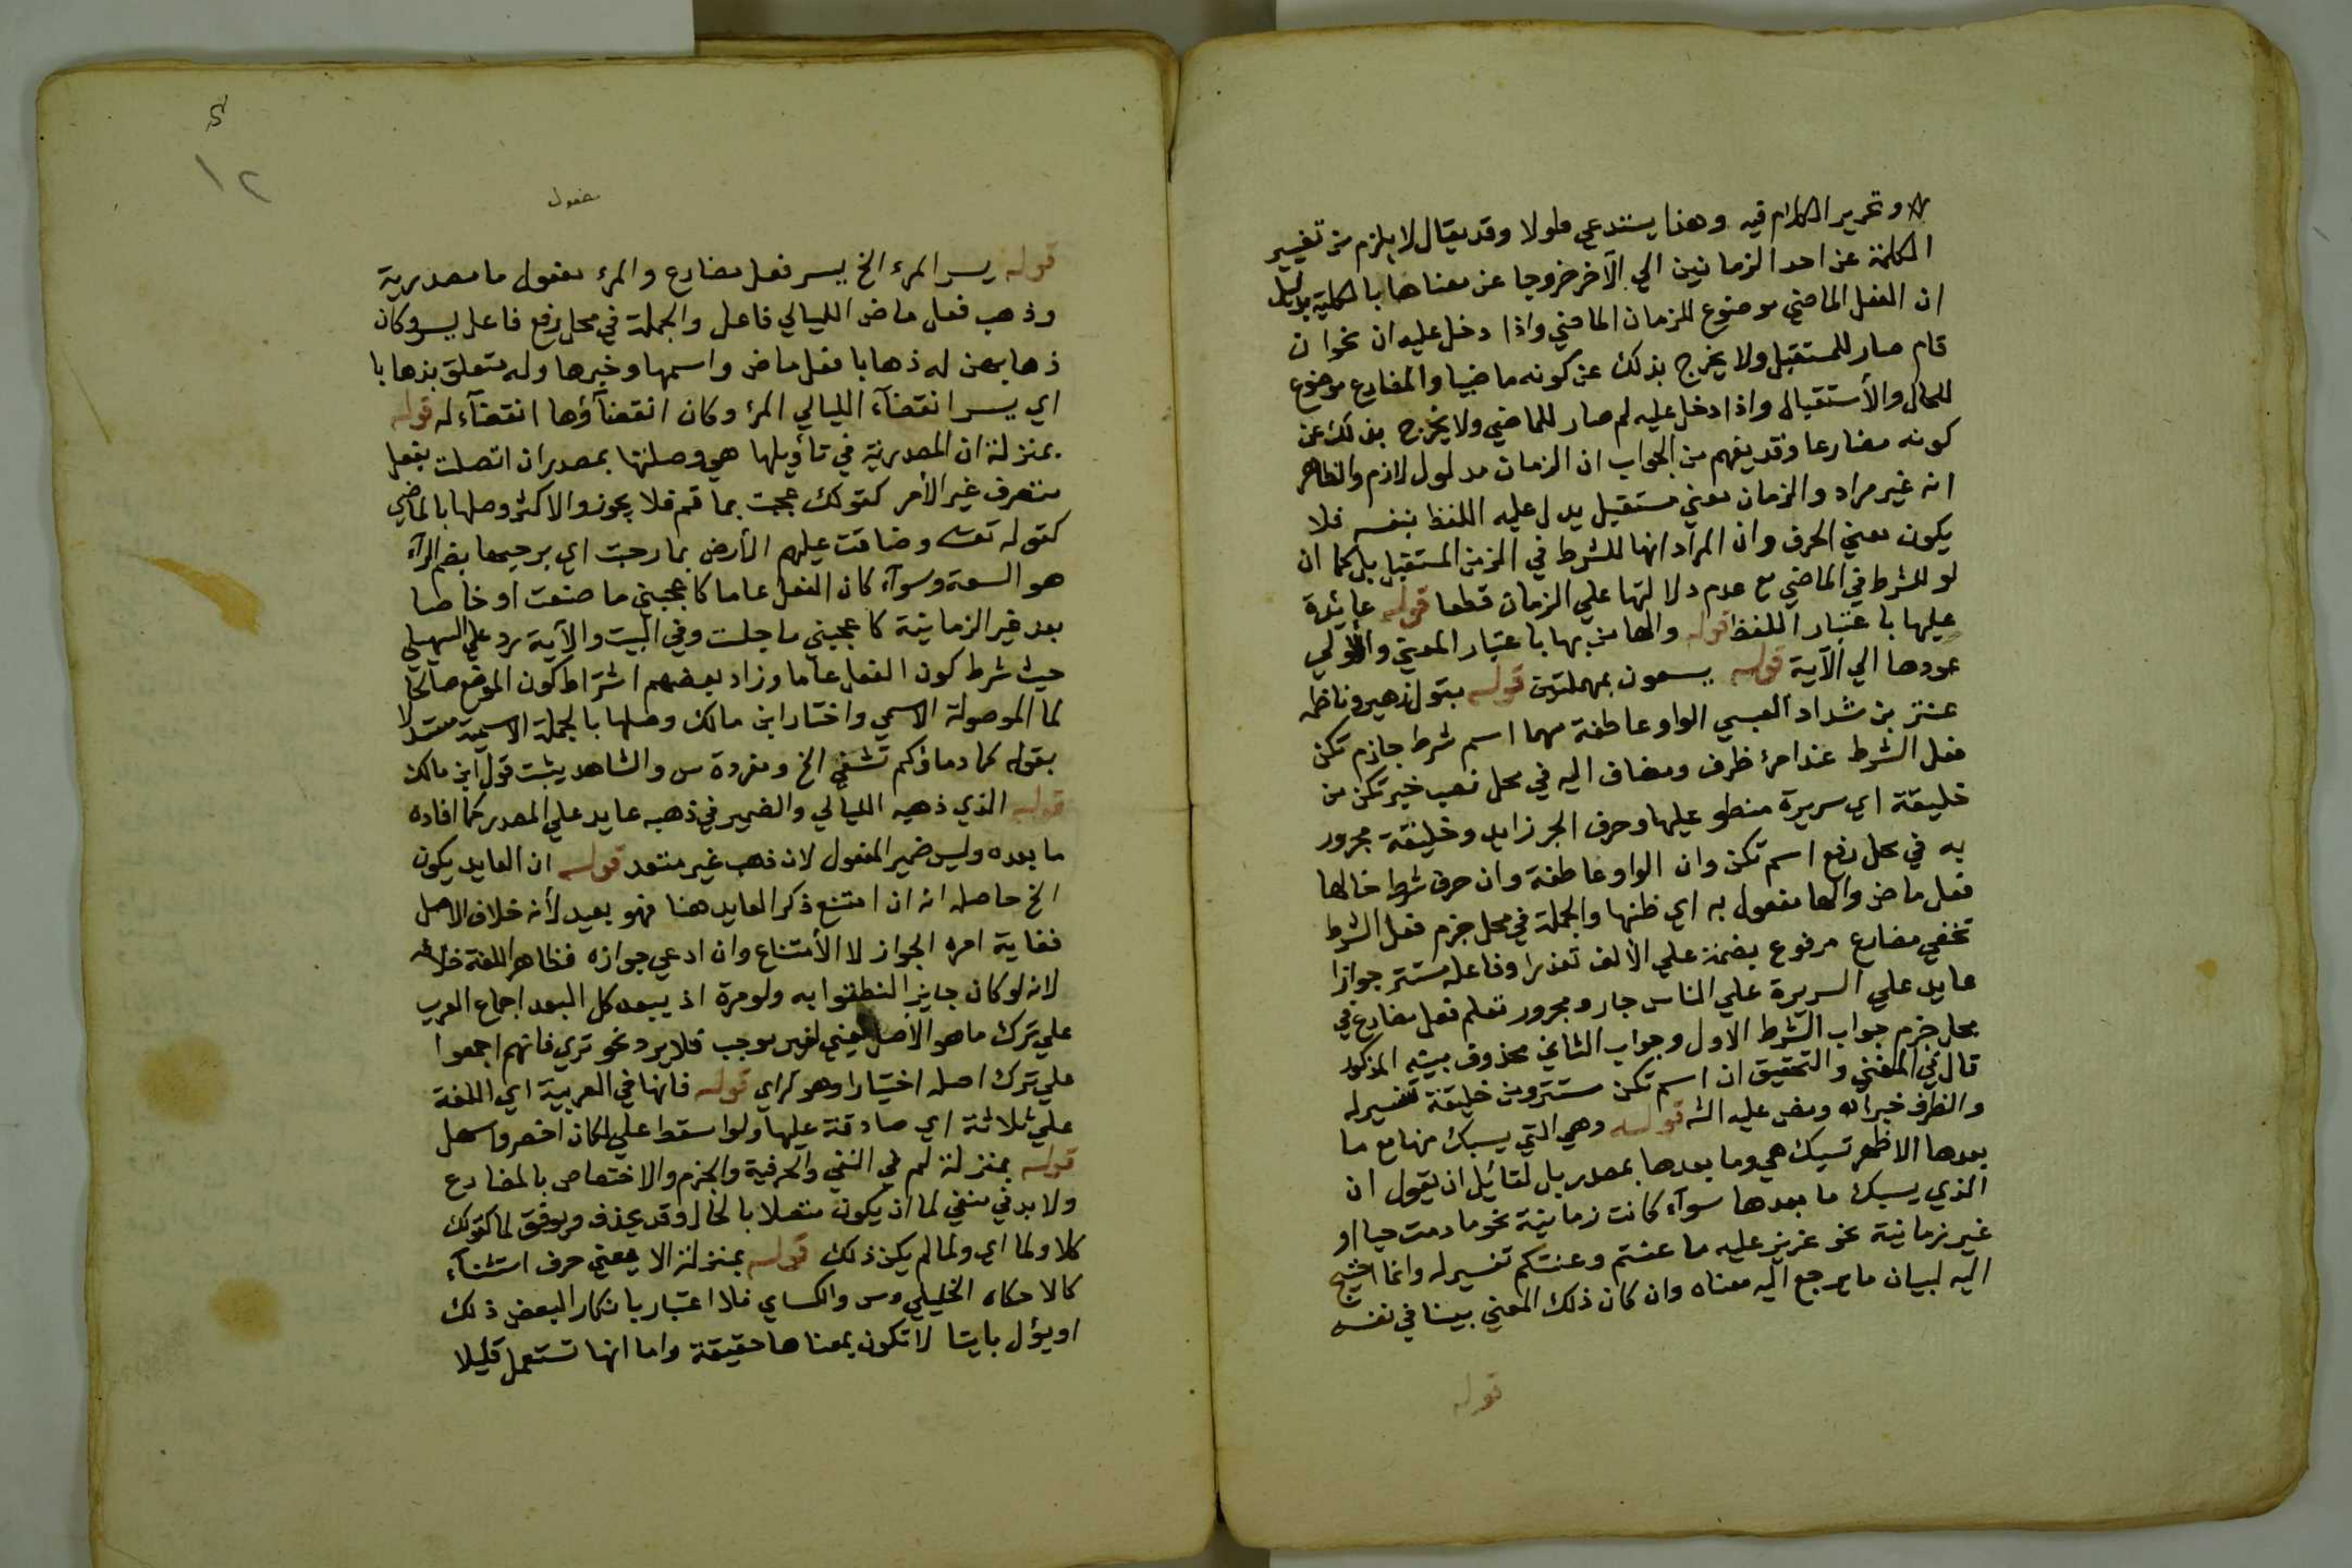 وتحرير الكلام فيه وهذا يستدعي طولا وقد يقال لا يلزم من تغيير
الكلمة عن احد الزمانين الي الآخر خروجا عن معناها بالكلية بدليل
ان الفعل الماضي موضوع للزمان الماضي واذا دخل عليه ان نحو ان
قام صار للمستقبل ولا يخرج بذلك عن كونه ماضيا والمضارع موضوع
للحال والأستقبال واذا دخل عليه لم صار للماضي ولا يخرج بذلك عن
كونه مضارعا وقد يفهم من الجواب ان الزمان مدلول لازم والظاهر
انه غير مراد والزمان معني مستقبل يدل عليه اللفظ بنفسه فلا
يكون معني الحرف وان المراد انها للشرط في الزمن المستقبل بل كما ان
لو للشرط في الماضي مع عدم دلالتها علي الزمان قطعا قوله عايدة
عليها باعتبار اللفظ قوله والهامن بها باعتبار المعني والأولي
عودها الي الآية قوله يسمون بمهملتين قوله بتول زهير وناظمه
عنتر بن شداد العبسي الواو عاطفة مهما اسم شرط جازم تكن
فعل الشرط عند امرئ ظرف ومضاف اليه في محل نصب خبر تكن من
خليقة اي سريرة منطو عليها وحرف الجر زايد وخليقة مجرور
به في محل رفع اسم تكن وان الواو عاطفة وان حرف شرط خالها
فعل ماض والها مفعول به اي ظنها والجملة في محل جزم فعل الشرط
تخفي مضارع مرفوع بضمة علي الألف تعذرا وفاعله مستتر جوازا
عايد علي السريرة علي الناس جار ومجرور تعلم فعل مضارع في
محل جزم جواب الشرط الاول وجواب الثاني محذوف بينه المذكور
قال في المغني والتحقيق ان اسم تكن مستتر ومن خليقة تفسير له
والظرف خبر اه ومض عليه الش قوله وهي التي يسبك منها مع ما
بعدها الاظهر تسبك هي وما بعدها بمصدر بل لقائل ان يقول ان
الذي يسبك ما بعدها سوآء كانت زمانية نحو ما دمت حيا او
غير زمانية نحو عزيز عليه ما عنتم وعنتكم تفسير له وانما احتيج
اليه لبيان ما يرجع اليه معناه وان كان ذلك المعني بينا في نفسه
قوله
١٢
مفعول
قوله يسر المرء الخ يسر فعل مضارع والمرء مفعول ما مصدرية
وذهب فعل ماض الليالي فاعل والجملة في محل رفع فاعل يسر وكان
ذهابهن له ذهابا فعل ماض واسمها وخبرها وله متعلق بذهابا
اي يسر انقضآء الليالي المرء وكان انقضآؤها انقضآء له قوله
بمنزلة ان المصدرية في تأويلها هي وصلتها بمصدر ان اتصلت بفعل
متصرف غير الأمر كقولك عجبت بما قم فلا يجوز والاكثر وصلها بالماضي
كقوله تعـ وضاقت عليهم الأرض بما رحبت اي برحبها بضم الرآء
هو السعة وسوآء كان الفعل عاما كاعجبني ما صنعت او خاصا
بعد غير الزمانية كاعجبني ما جلست وفي البيت والآية رد علي السهيلي
حيث شرط كون الفعل عاما وزاد بعضهم اشتراط كون الموضع صالحا
لما الموصولة الاسمي واختار ابن مالك وصلها بالجملة الاسمية مستدلا
بقوله كما دماؤكم تشفي الخ ومفردة س والشاهد يثبت قول ابن مالك
قوله الذي ذهبه الليالي والضمير في ذهبه عايد علي المصدر كما افاده
ما بعده وليس ضمير المفعول لان ذهب غير متعد قوله ان العايد يكون
الخ حاصله انه ان امتنع ذكر العايد هنا فهو بعيد لأنه خلاف الاصل
فغاية امره الجواز لا الأمتناع وان ادعي جوازه فظاهر اللغة خلافه
لانه لو كان جايز النطقوا به ولو مرة اذ يبعد كل البعد اجماع العرب
علي ترك ما هو الاصل يعني لغير موجب فلا يرد نحو تري فانهم اجمعوا
علي ترك اصله اختيارا وهو تراي قوله فانها في العربية اي اللغة
علي ثلاثة اي صادقة عليها ولو اسقط علي لكان اخصر واسهل
قوله بمنزلة لم في النفي والحرفية والجزم والاختصاص بالمضارع
ولا بد في منفي لما ان يكون متصلا بالحال وقد يحذف ويوقف لما كقولك
كلا ولما اي ولما لم يكن ذلك قوله بمنزلة الا يعني حرف استثنآء
كالا حكاه الخليلي وس والكساي فلا اعتبار بانكار البعض ذلك
او يؤل بايتا لا تكون بمعناها حقيقة واما انها تستعمل قليلا